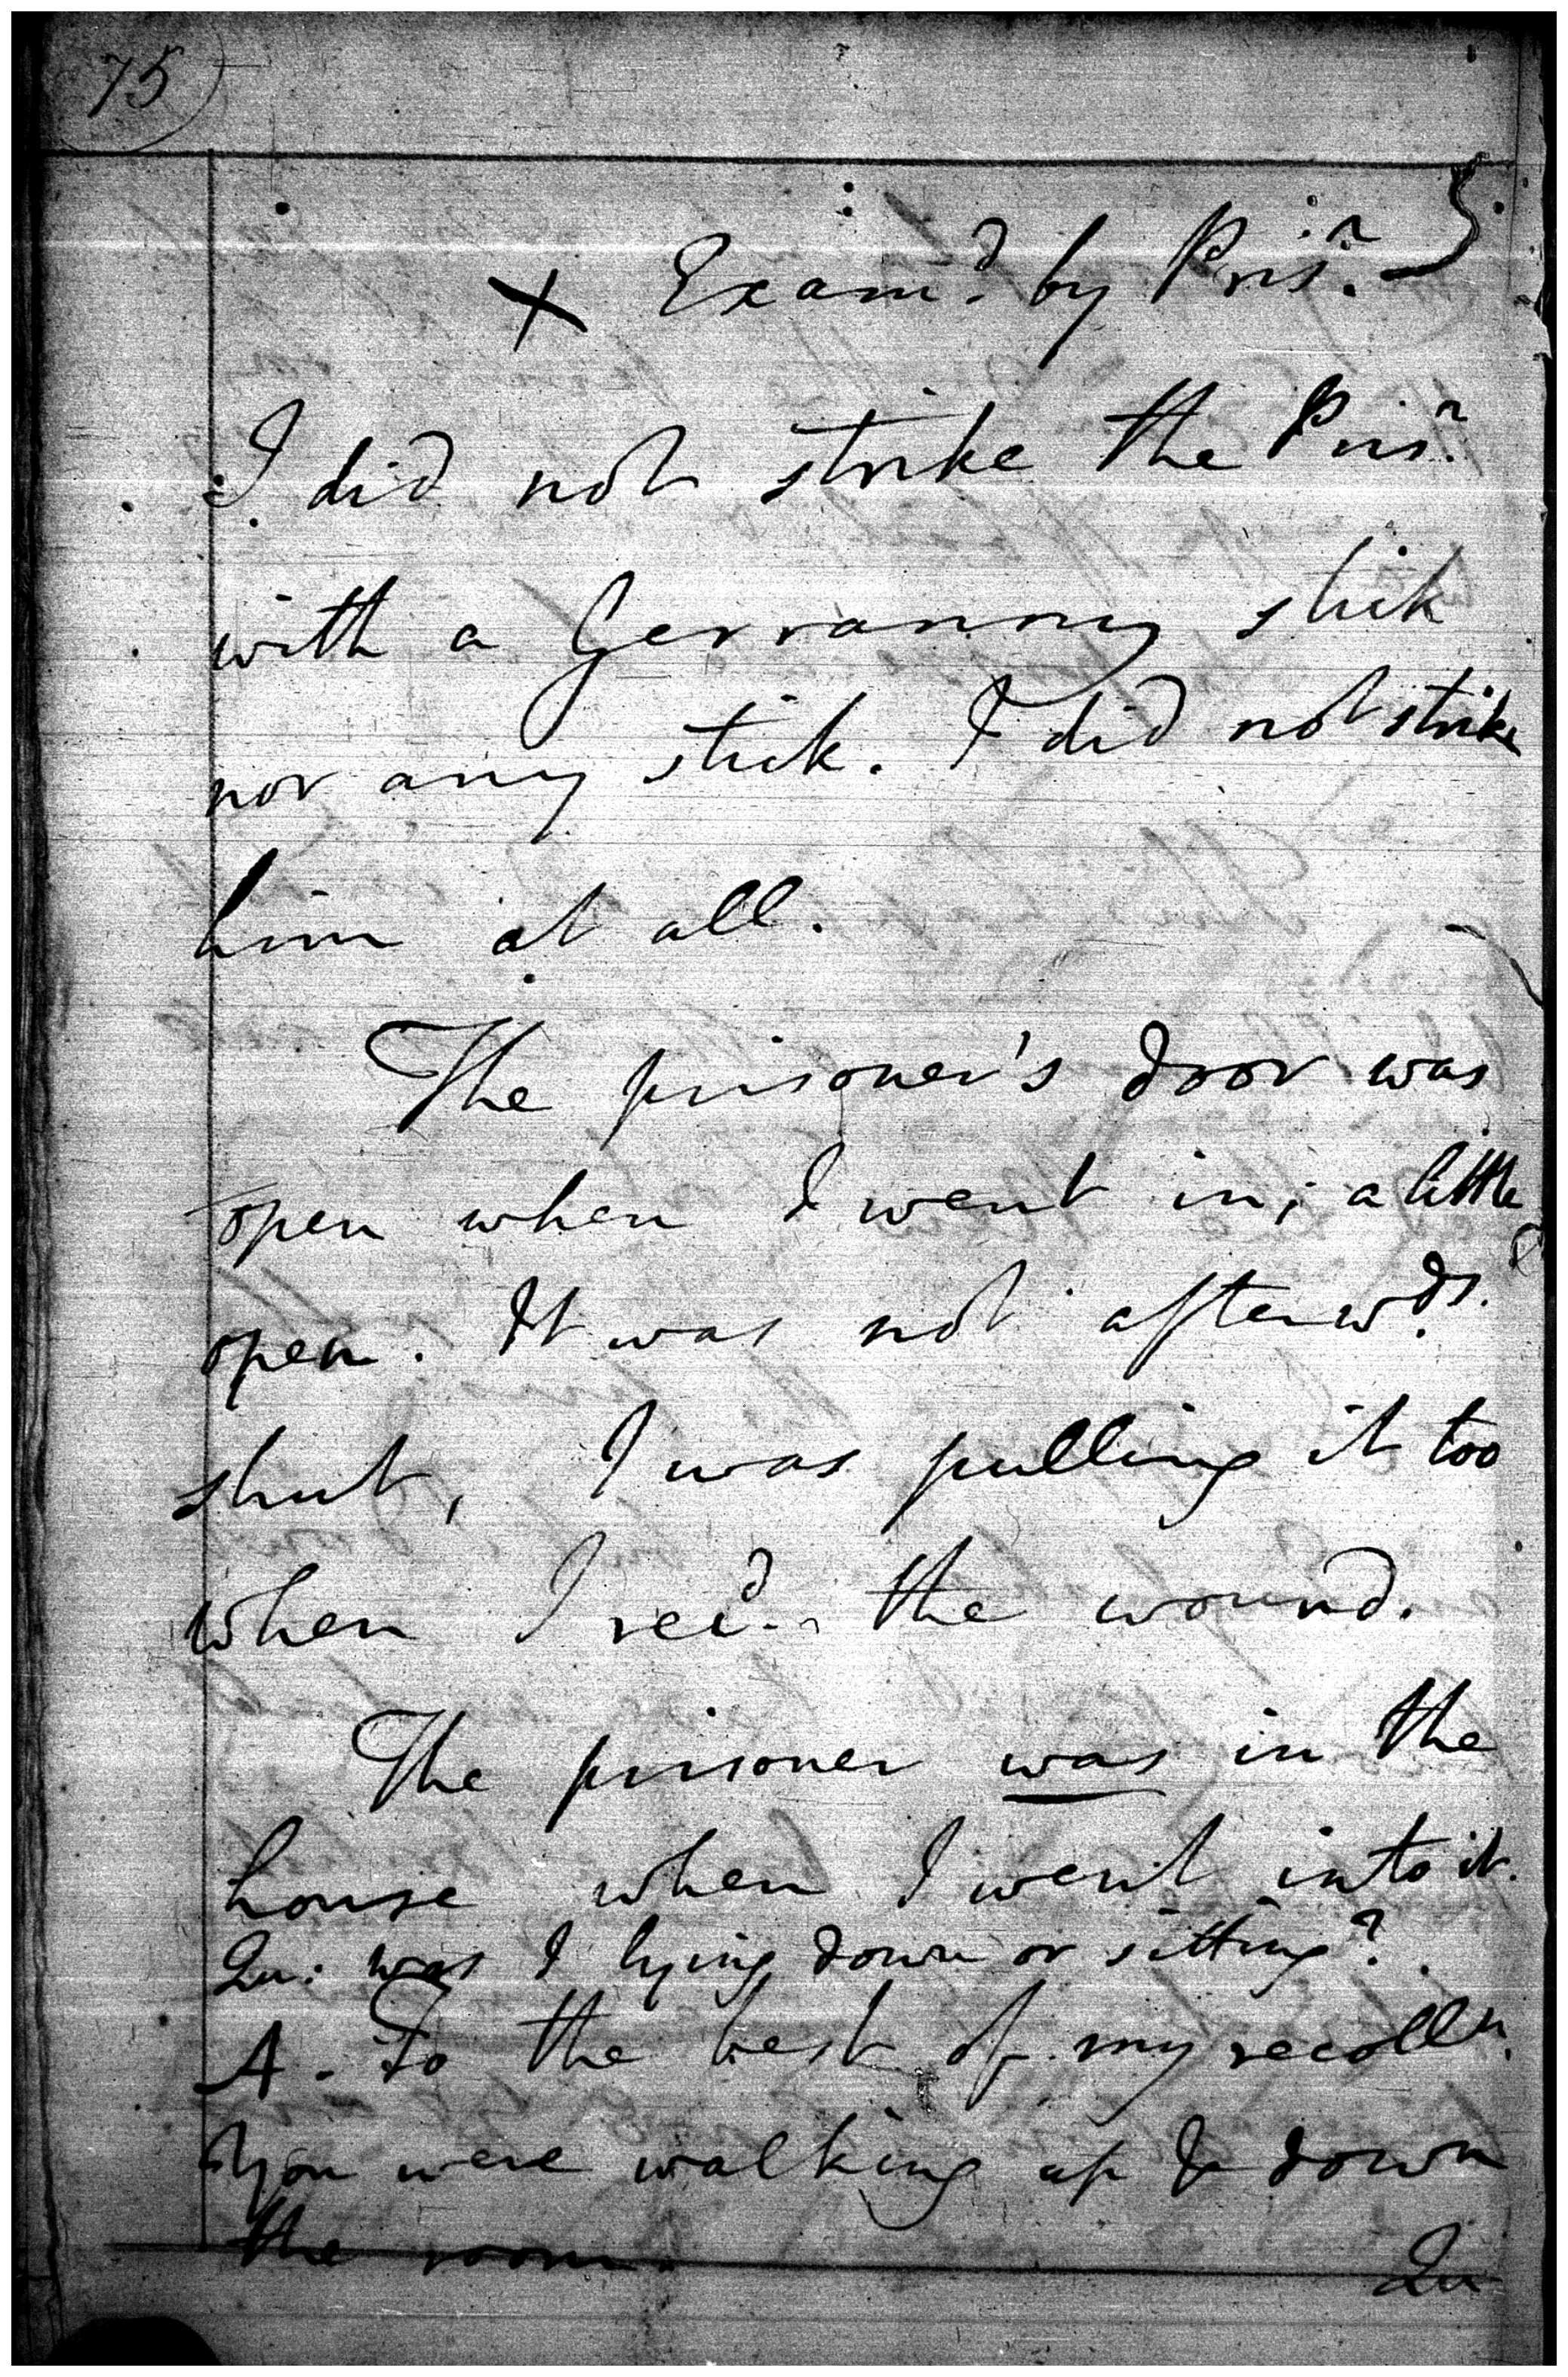 75
X Exam.d by Pris.r
I did not strike the Pris.r
with a Gerranny stick
nor any stick. I did not strike
him at all.
The prisoner's door was
open when I went in; a little
open. It was not afterw.ds
shut, I was pulling it too
when I rec.d the wound.
The prisoner was in the
house when I went into it.
Qu: was I lying down or sitting?
A. To the best of my recolln.
you were walking up & down
the room.
Qu